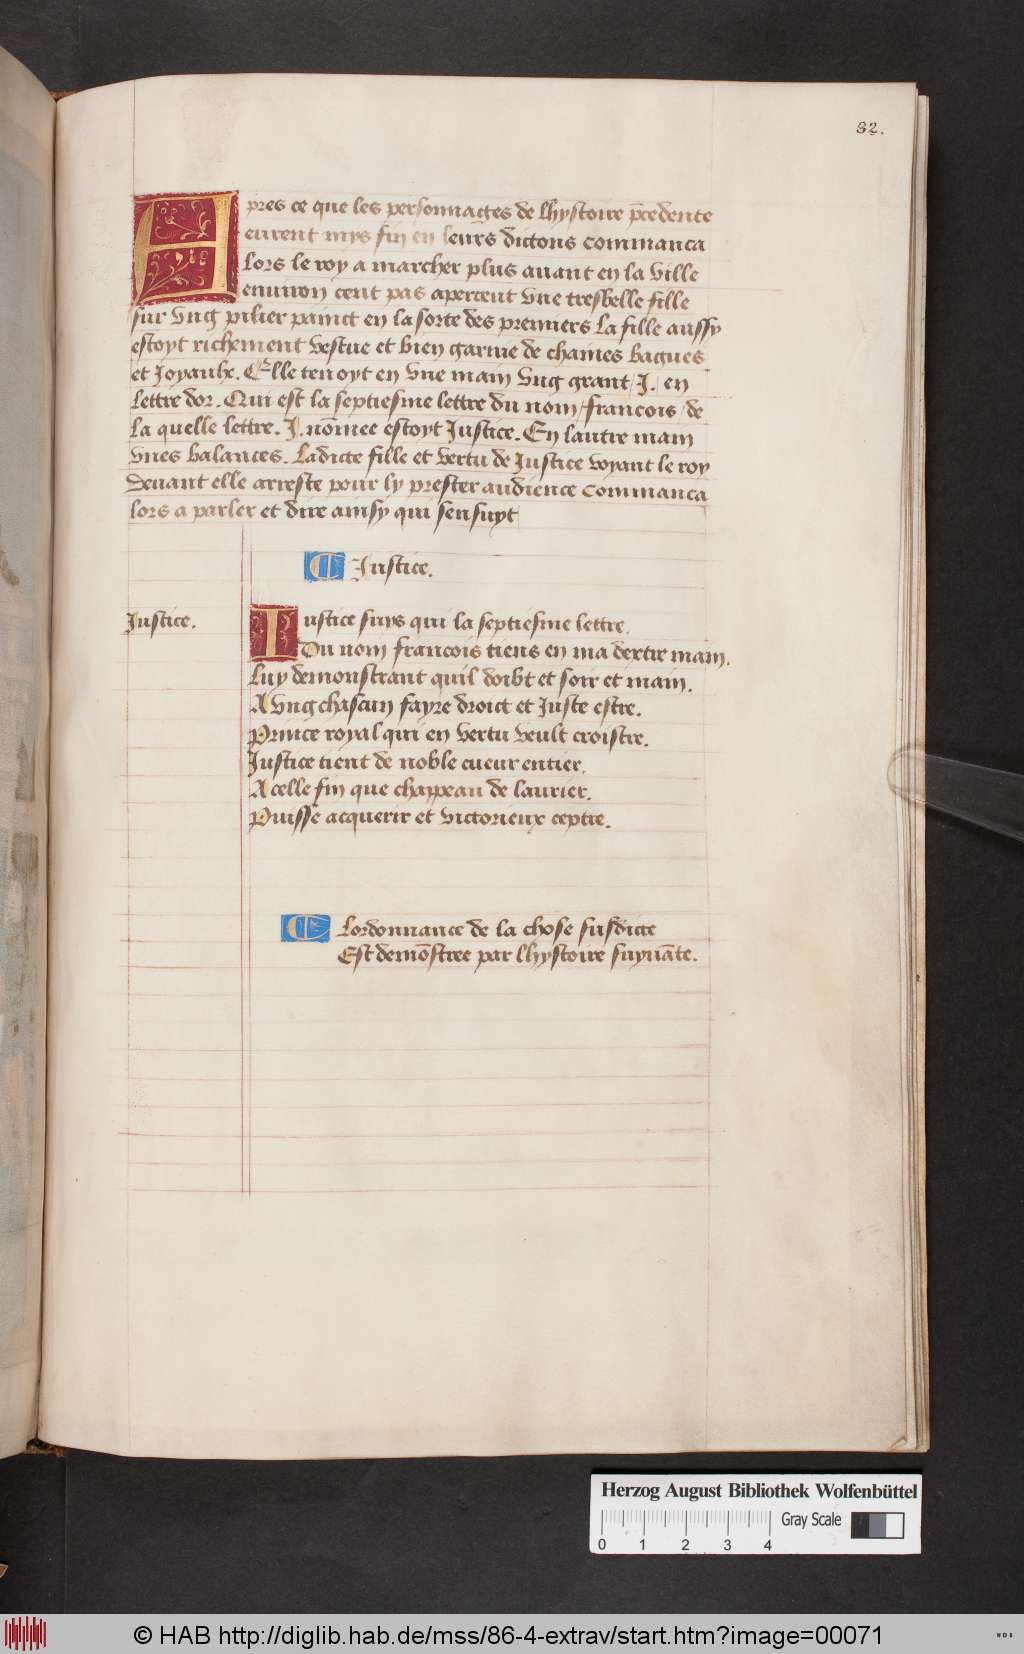 32.
Apres ce que les personnaiges de lhystoire p̄cedente
eurent mys fin en leurs dictons commanca
lors le roy a marcher plus auant en la ville
enuiron cent pas apercent vne tresbelle fille
sur vng pilier painct en la sorte des premiers la fille aussy
estoyt richement vestue et bien garnie de chaines bagues
et Joyaulx. Elle tenoyt en vne main vng grant /J. / en
lettre dor. Qui est la septiesme lettre du nom /francois / de
la quelle lettre. J. nōmee estoyt Justice. En lautre main
vnes balances. Ladicte fille et vertu de Justice voyant le roy
deuant elle arreste pour ly prester audience commanca
lors a parler et dire ainsy qui sensuyt
C Justice.
Justice.
Iustice suys qui la septiesme lettre.
Du nom francois tiens en ma dextre main.
Luy demonstrant quil doibt et soir et main.
A vng chascun fayre droict et Juste estre.
Prince royal qui en vertu veult croistre.
Justice tient de noble cueur entier.
A celle fin que chappeau de laurier.
Puisse acquerir et victorieux ceptre.
C Lordonnance de la chose susdicte
Est demōstree par lhystoire suyuāte.
Herzog August Bibliothek Wolfenbüttel
Gray Scale
0 1 2 3 4
© HAB http://diglib.hab.de/mss/86-4-extrav/start.htm?image=00071